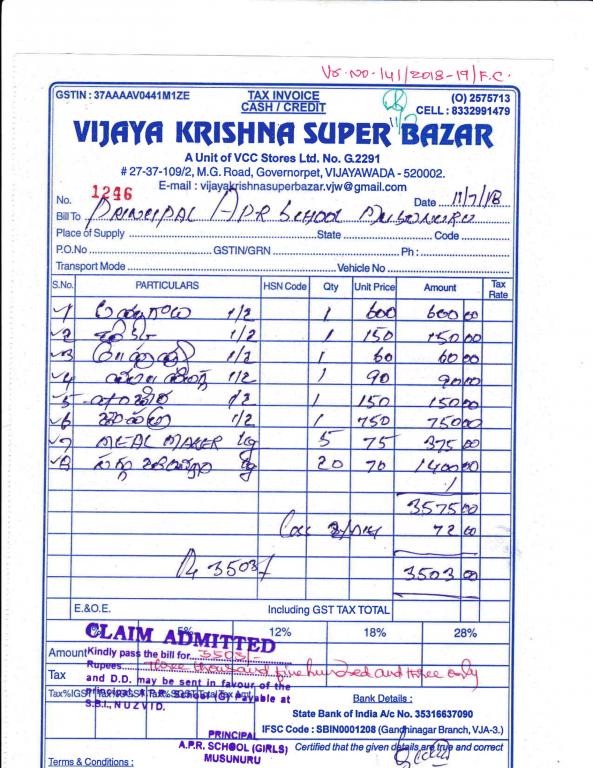 Vr. No - 141/2018-19/F.C.
GSTIN : 37AAAAV0441M1ZE
TAX INVOICE
CASH / CREDIT
(O) 2575713
CELL : 8332991479
VIJAYA KRISHNA SUPER BAZAR
A Unit of VCC Stores Ltd. No. G.2291
# 27-37-109/2, M.G. Road, Governorpet, VIJAYAWADA - 520002.
E-mail : vijayakrishnasuperbazar.vjw@gmail.com
No. 1246 Date 11/7/18
Bill To PRINCIPAL APR SCHOOL
Place of Supply State Code
P.O.No GSTIN/GRN Ph :
Transport Mode Vehicle No
S.No. PARTICULARS HSN Code Qty Unit Price Amount Tax Rate
1 1/2 1 600 600 00
2 1/2 1 150 150 00
3 1/2 1 60 60 00
4 1/2 1 90 90 00
5 1/2 1 150 150 00
6 1/2 1 750 750 00
7 MEAL MAKER kg 5 75 375 00
8 kg 20 70 1400 00
3575 00
72 00
Rs 3503/ 3503 00
E.&O.E. Including GST TAX TOTAL
5% 12% 18% 28%
CLAIM ADMITTED
Amount Kindly pass the bill for 3503/-
Rupees Three thousand five hundred and three only
Tax and D.D. may be sent in favour of the
principal A.P.R. School (G) Payable at
S.B.I., NUZVID.
Bank Details :
State Bank of India A/c No. 35316637090
IFSC Code : SBIN0001208 (Gandhinagar Branch, VJA-3.)
PRINCIPAL
A.P.R. SCHOOL (GIRLS)
MUSUNURU
Certified that the given details are true and correct
Terms & Conditions :